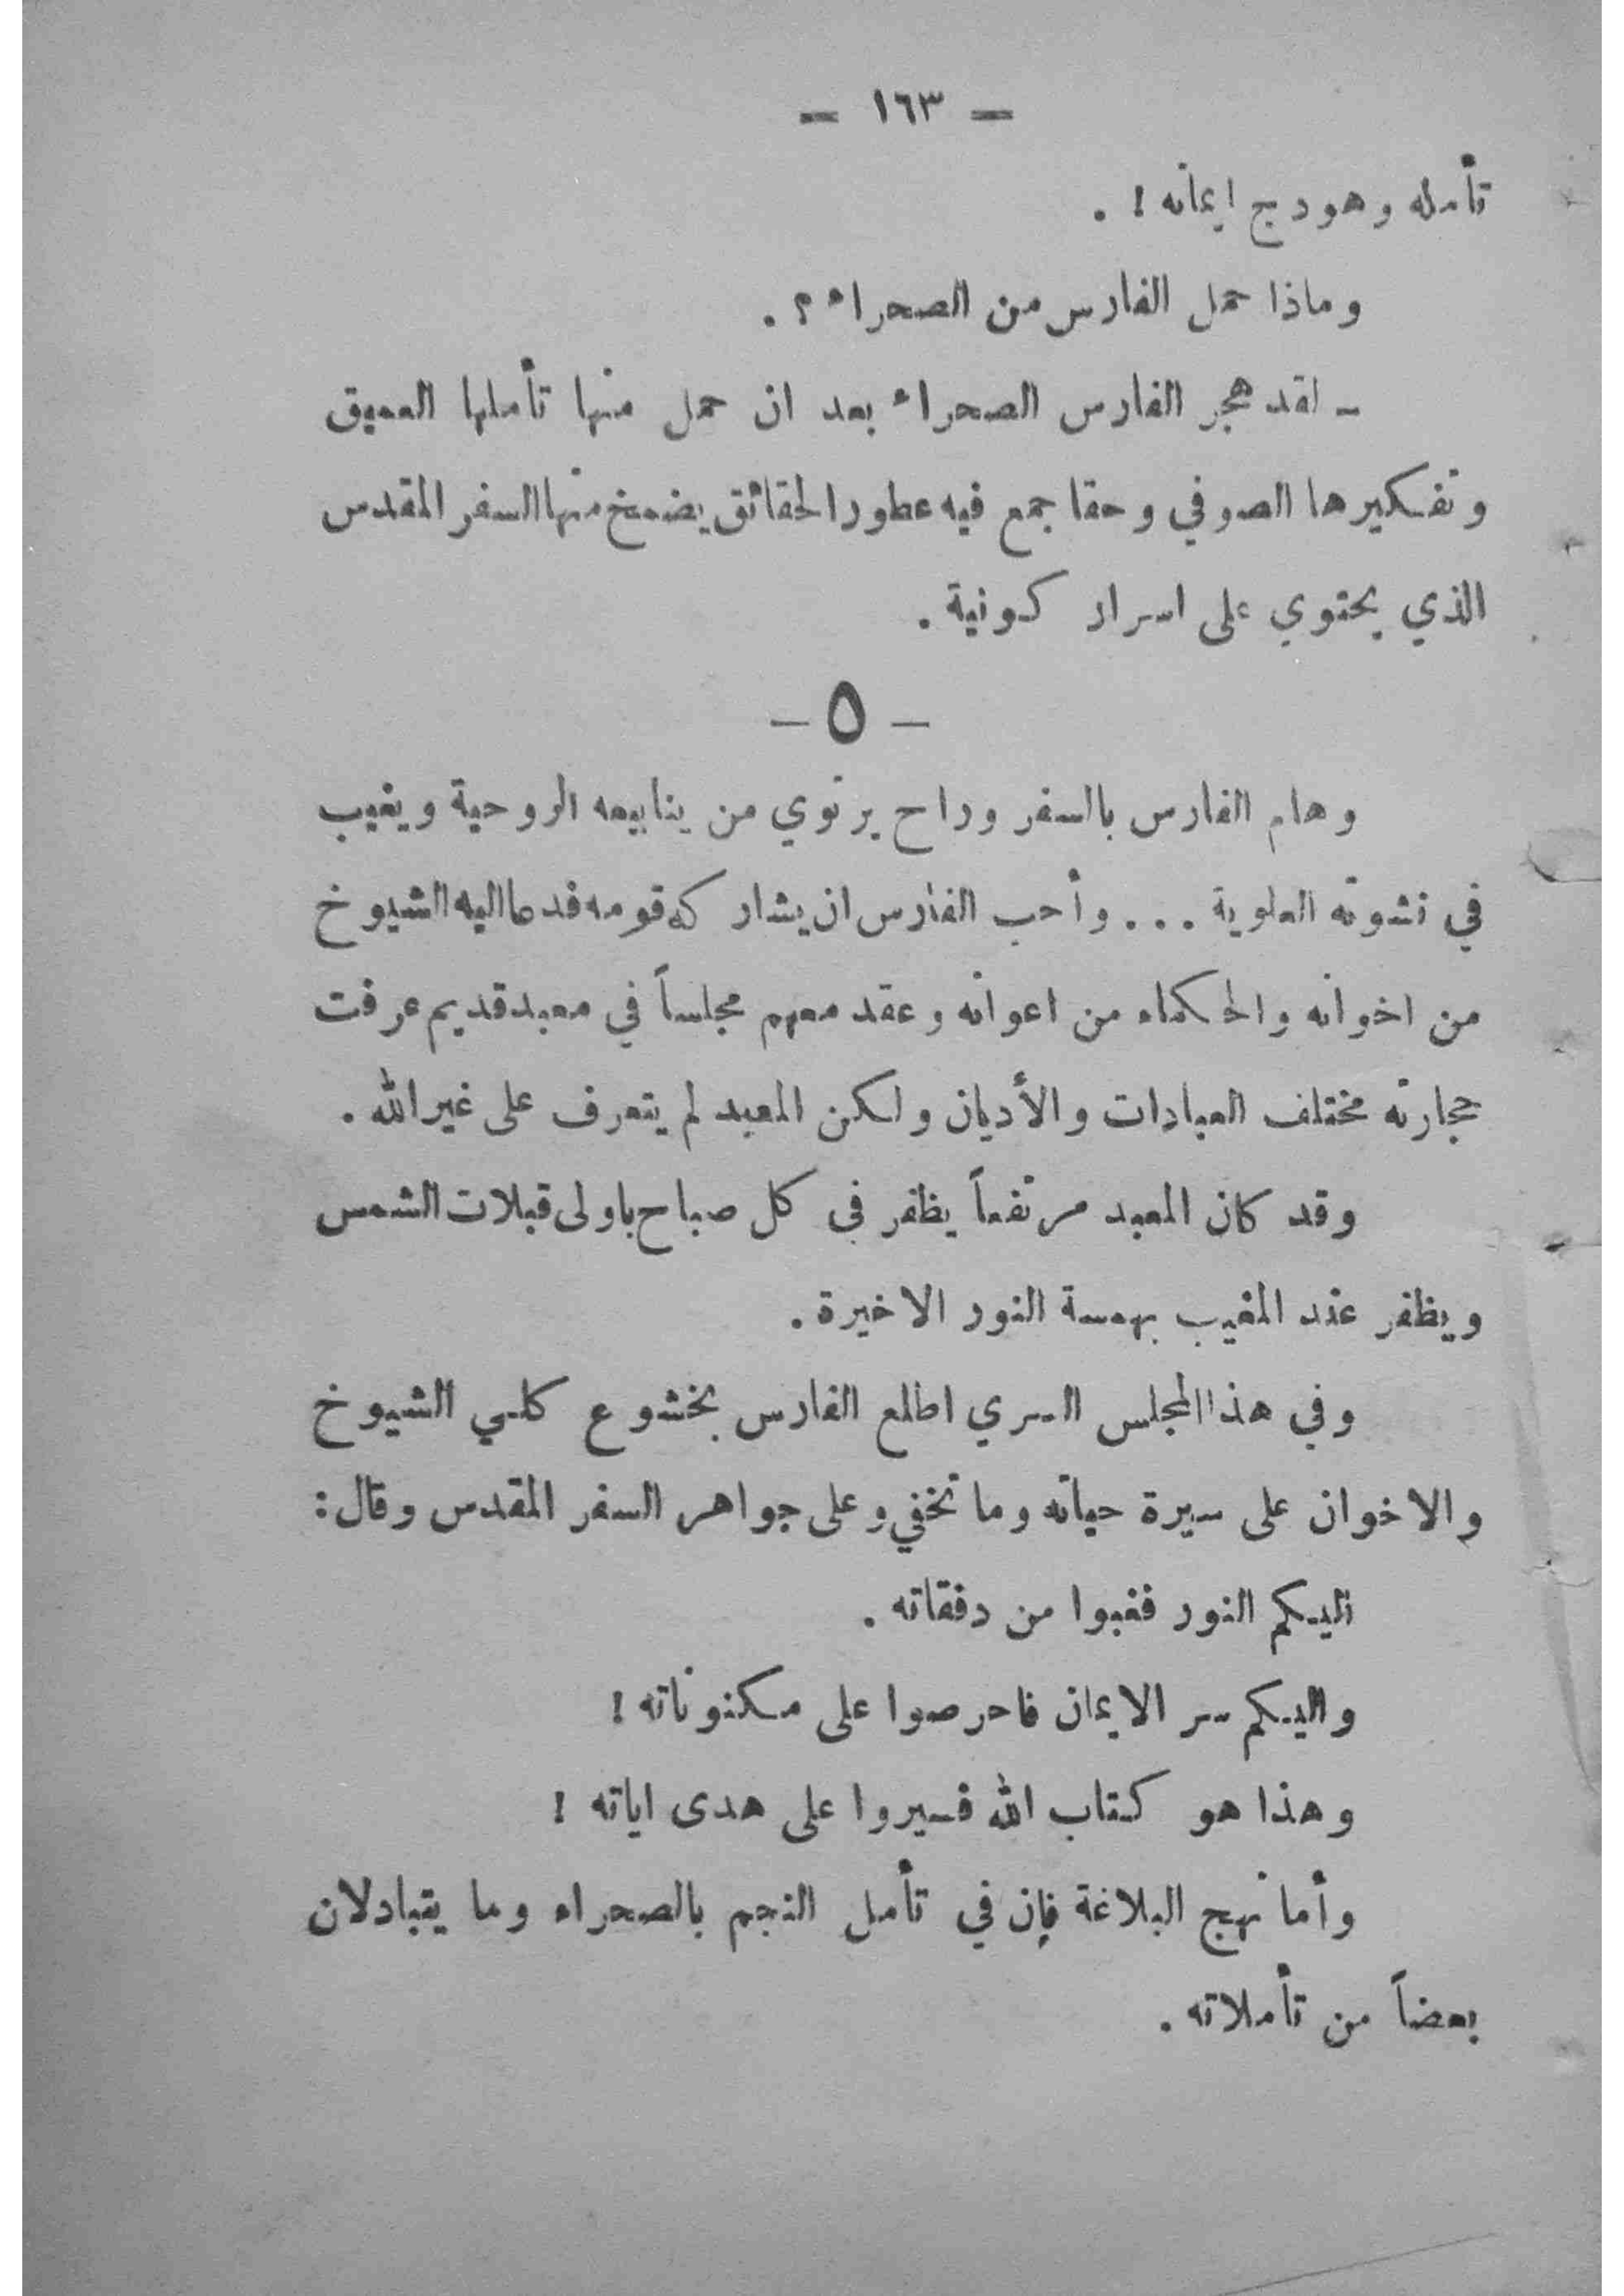 — ١٦٣ —
تأمله وهودج ايمانه ! .
وماذا حمل الفارس من الصحراء ؟ .
– لقد هجر الفارس الصحراء بعد ان حمل منها تأملها العميق
وتفكيرها الصوفي وحقا جمع فيه عطور الحقائق يضمخ منها السفر المقدس
الذي يحتوي على اسرار كونية .
– ٥ –
وهام الفارس بالسفر وراح يرتوي من ينابيعه الروحية ويغيب
في نشوته العلوية ... وأحب الفارس ان يشاركه قومه فدعا اليه الشيوخ
من اخوانه والحكماء من اعوانه وعقد معهم مجلساً في معبد قديم عرفت
حجارته مختلف العبادات والأديان ولكن المعبد لم يتعرف على غير الله .
وقد كان المعبد مرتفعاً يظفر في كل صباح باولى قبلات الشمس
ويظفر عند المغيب بهمسة النور الاخيرة .
وفي هذا المجلس السري اطلع الفارس بخشوع كلي الشيوخ
والاخوان على سيرة حياته وما تخفي وعلى جواهر السفر المقدس وقال :
اليكم النور فغبوا من دفقاته .
واليكم سر الايمان فاحرصوا على مكنوناته !
وهذا هو كتاب الله فسيروا على هدى اياته !
وأما نهج البلاغة فإن في تأمل النجم بالصحراء وما يتبادلان
بعضاً من تأملاته .